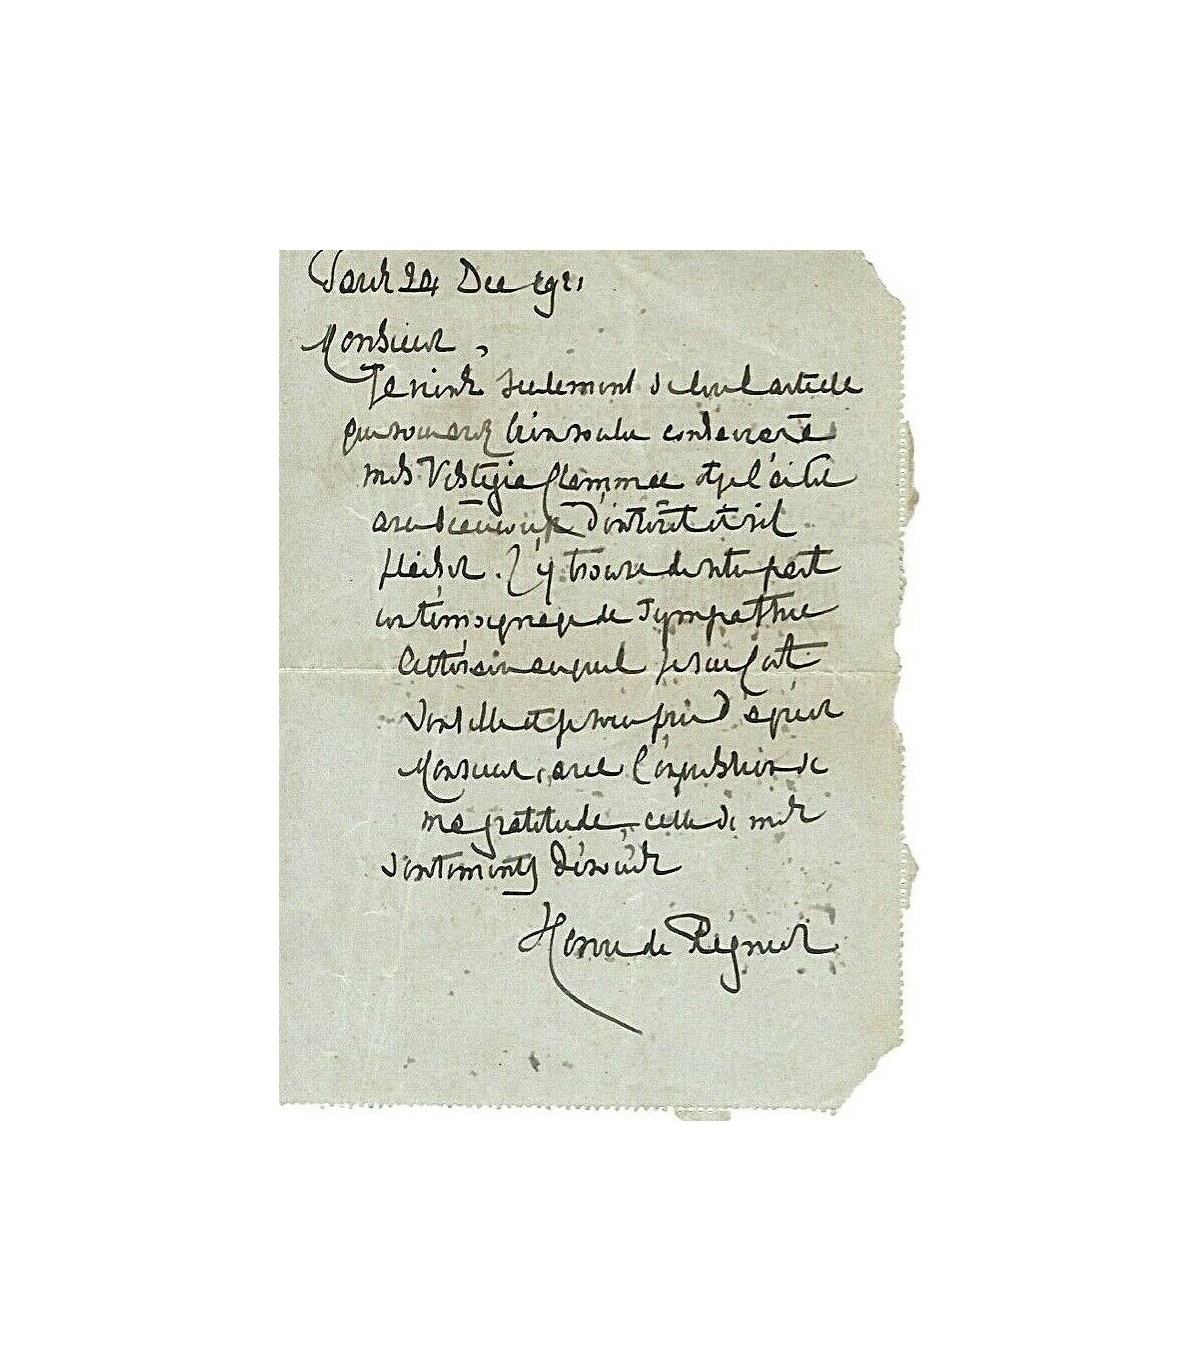 Paris 24 Dec 1921
Monsieur,
Je viens seulement de lire l'article
que vous avez bien voulu consacrer à
mes Vestigia Flammae et je l'ai lu
avec beaucoup d'intérêt et vif
plaisir. J'y trouve de votre part
un témoignage de sympathie
littéraire auquel je suis fort
sensible et je vous prie d'agréer
Monsieur, avec l'expression de
ma gratitude, celle de mes
sentiments dévoués
Henri de Régnier